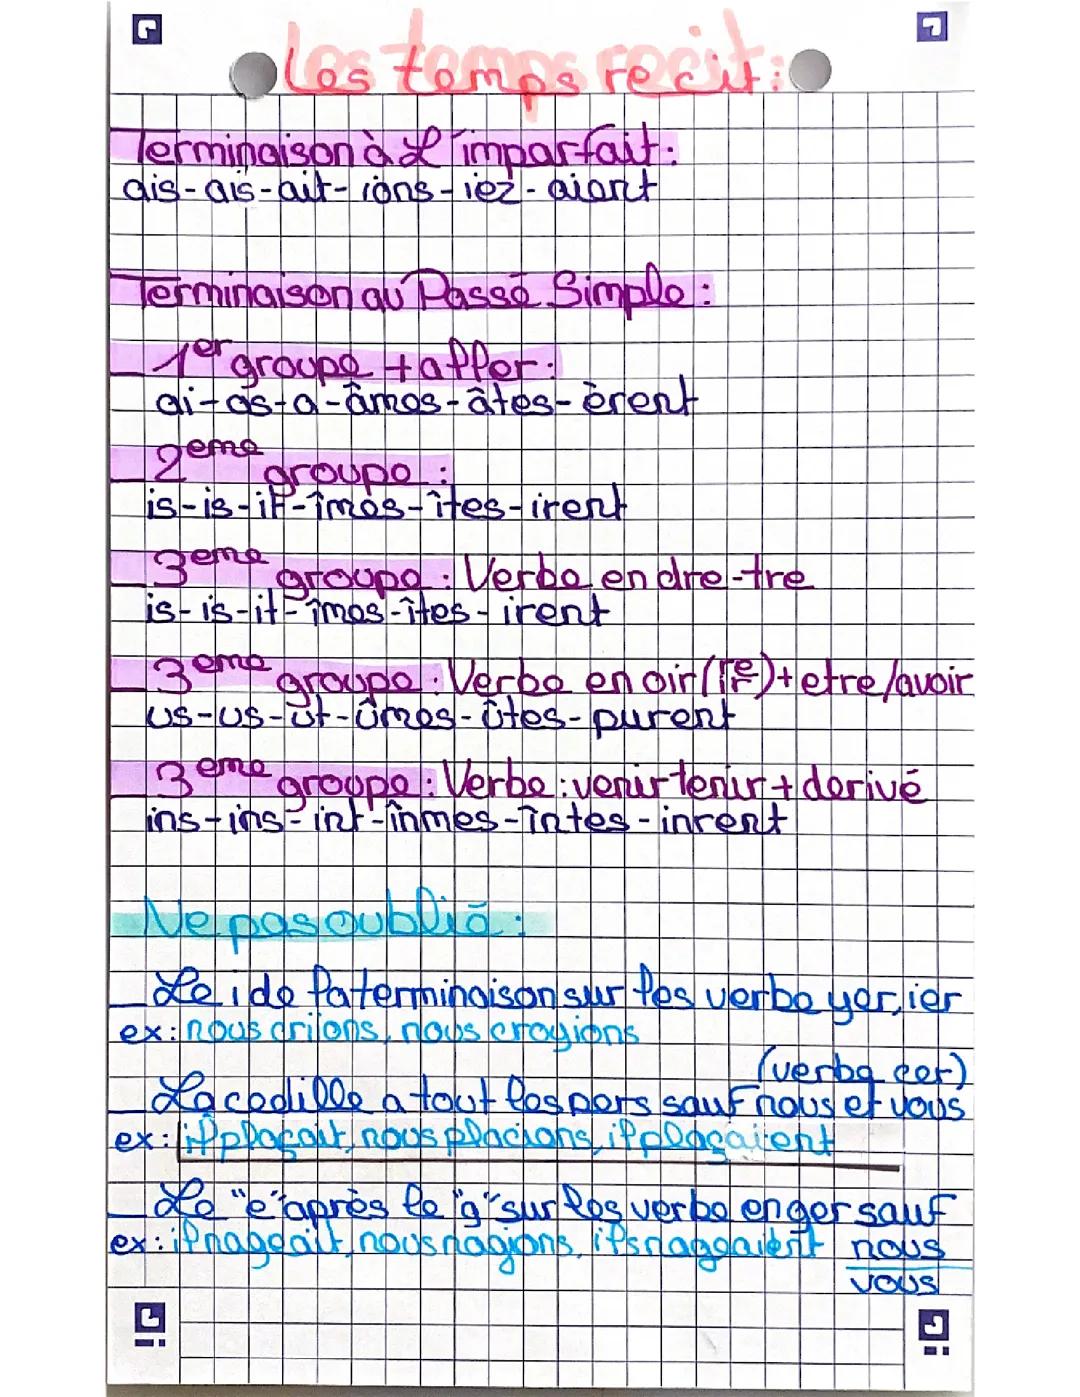 Les temps recit:
Terminaison à L'imparfait:
ais-ais-ait-ions-iez-aient
Terminaison au Passé Simple:
1er groupe + aller:
ai-as-a-âmes-âtes-èrent
2eme groupe:
is-is-it-îmes-îtes-irent
3eme groupe: Verbe en dre-tre
is-is-it-îmes-îtes-irent
3eme groupe: Verbe en oir(re)+etre/avoir
us-us-ut-ûmes-ûtes-purent
3eme groupe: Verbe: venir tenir + derivé
ins-ins-int-înmes-întes-inrent
Ne pas oublié:
Le i de la terminaison sur les verbe yer, ier
ex: nous criions, nous croyions
(verbe cer)
La cedille a tout les pers sauf nous et vous
ex: il plaçait, nous placions, il plaçaient
Le "e" après le "g" sur les verbe en ger sauf
ex: il nageait, nous nagions, ils nageaient nous
vous